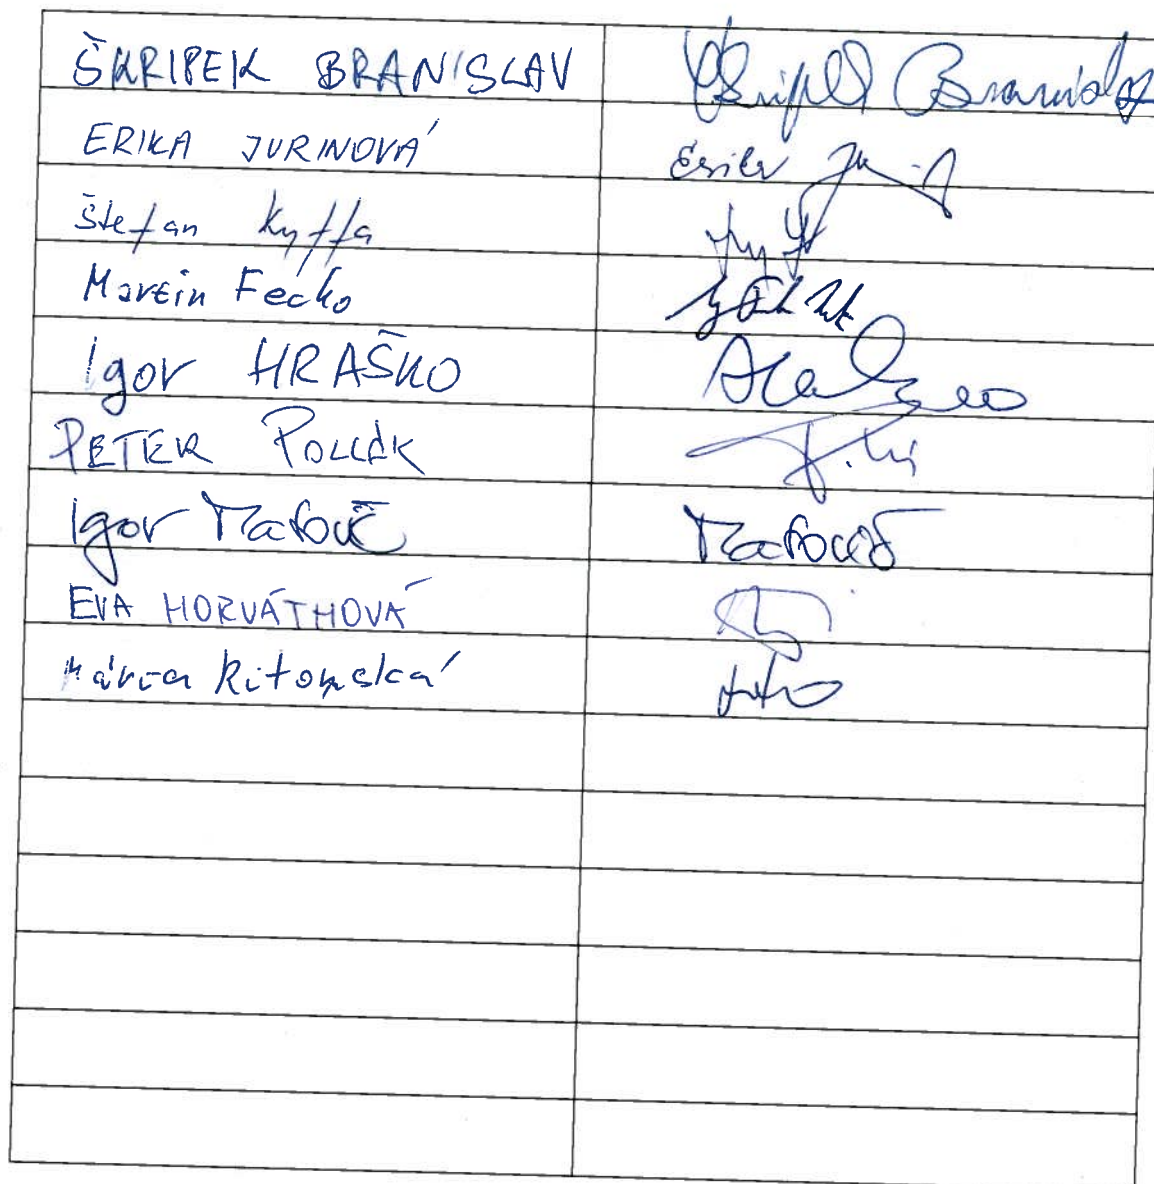 ŠKRIPEK BRANISLAV Škripek Branislav
ERIKA JURINOVÁ Erika
Štefan Kuffa
Martin Fecko
Igor HRAŠKO
PETER POLLÁK
Igor Matovič Matovič
EVA HORVÁTHOVÁ
Mária Ritomská